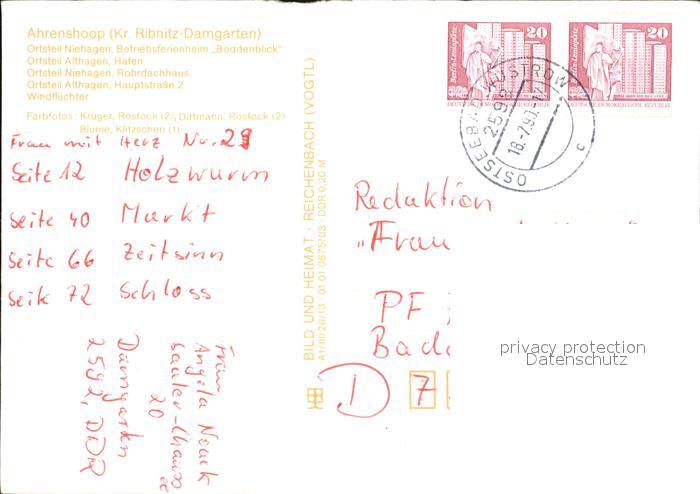 Ahrenshoop (Kr. Ribnitz-Damgarten)
Ortsteil Niehagen, Betriebsferienheim „Boddenblick"
Ortsteil Althagen, Hafen
Ortsteil Niehagen, Rohrdachhaus
Ortsteil Althagen, Hauptstraße 2
Windflüchter
Farbfotos: Krüger, Rostock (2), Dittmann, Rostock (2)
Blume, Klitzschen (1)
Frau mit Herz Nr. 29
Seite 12 Holzwurm
Seite 40 Markt
Seite 66 Zeitsinn
Seite 72 Schloss
Frau
Angela
20
Damgarten
2592, DDR
BILD UND HEIMAT · REICHENBACH (VOGTL)
A1/III/26/13 01 01 0675/03 DDR 0,20 M
20
Berlin-Leninplatz
DEUTSCHE DEMOKRATISCHE REPUBLIK
20
Berlin-Leninplatz
DEUTSCHE DEMOKRATISCHE REPUBLIK
OSTSEEBAD WUSTROW
2598
18.7.90
c
Redaktion
„Frau
PF
Bad
D 7
privacy protection
Datenschutz